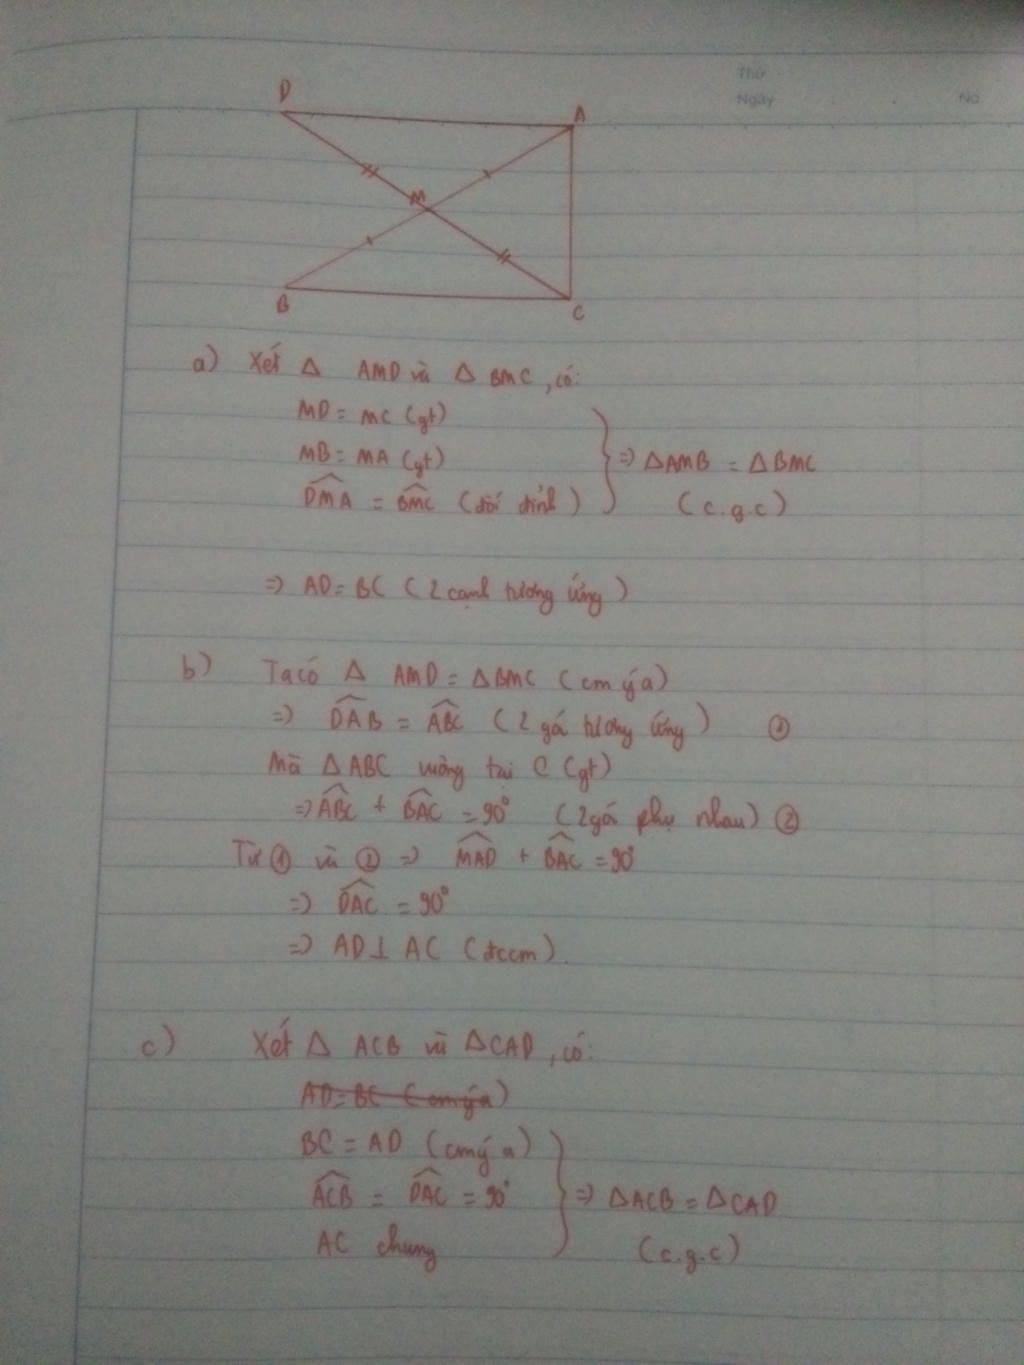 Thứ
Ngày . . No
D
A
M
B
C
a) Xét Δ AMD và Δ BMC, có:
MD = MC (gt)
MB = MA (gt) => ΔAMB = ΔBMC
DMA = BMC (đối đỉnh) (c.g.c)
=> AD = BC (2 cạnh tương ứng)
b) Ta có Δ AMD = ΔBMC (cm ý a)
=> DAB = ABC (2 gó tương ứng) ①
Mà ΔABC vuông tại C (gt)
=> ABC + BAC = 90° (2 gó phụ nhau) ②
Từ ① và ② => MAD + BAC = 90°
=> DAC = 90°
=> AD ⊥ AC (đccm).
c) Xét Δ ACB và ΔCAD, có:
AD = BC (cm ý a)
BC = AD (cm ý a)
ACB = DAC = 90° => ΔACB = ΔCAD
AC chung (c.g.c)